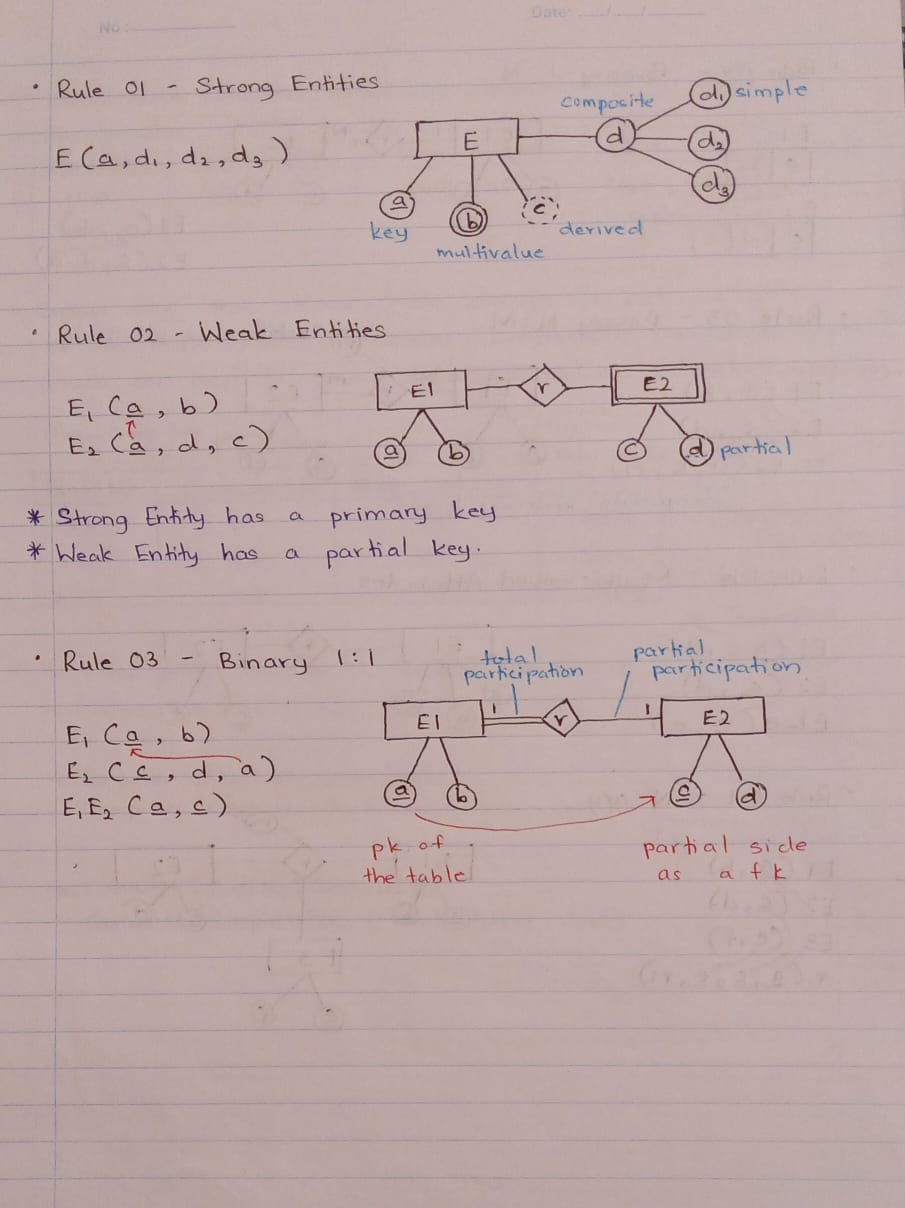 No :
Date:
• Rule 01 - Strong Entities
E (a, d₁, d₂, d₃)
E
composite
d
d₁ simple
d₂
d₃
a
key
b
multivalue
c
derived
• Rule 02 - Weak Entities
E₁ (a, b)
E₂ (a, d, c)
E1
r
E2
a
b
c
d partial
* Strong Entity has a primary key
* Weak Entity has a partial key.
• Rule 03 - Binary 1:1
total
participation
partial
participation
E₁ (a, b)
E₂ (c, d, a)
E₁E₂ (a, c)
E1
1
r
1
E2
a
b
c
d
pk of
the table
partial side
as a fk